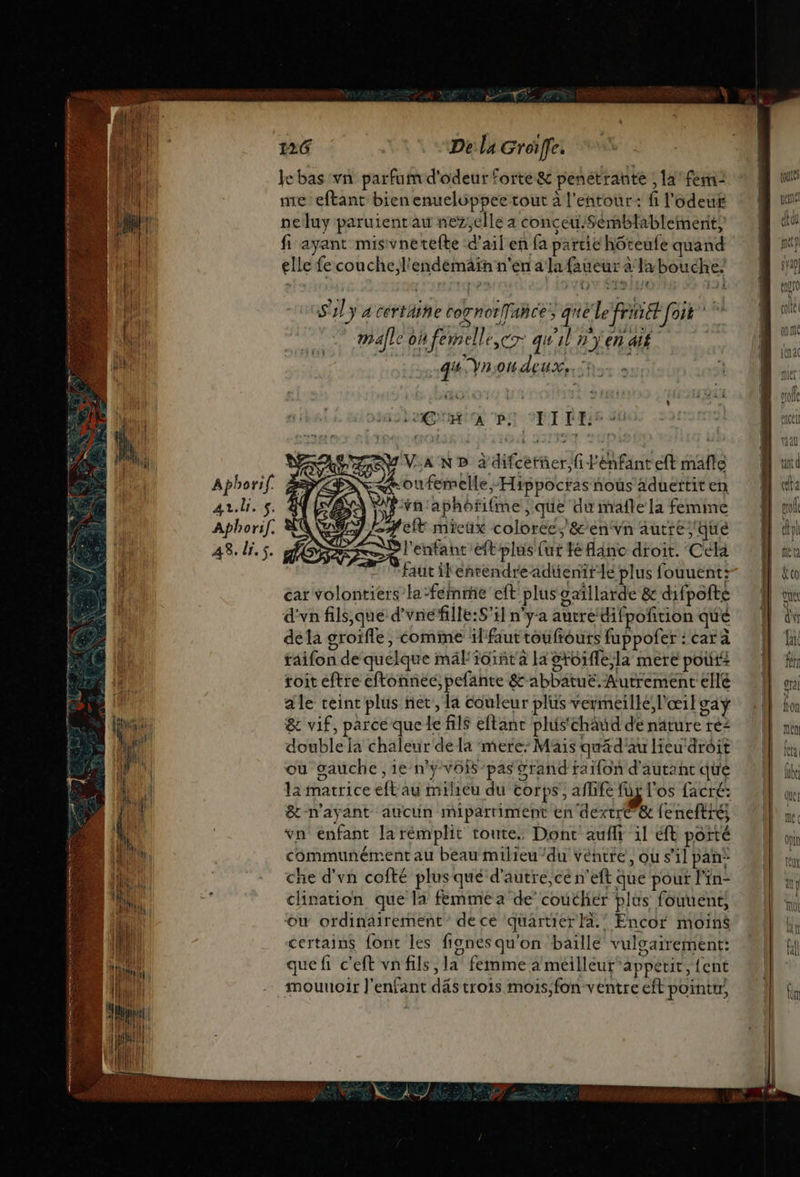 126 De la Groiſſe.
le bas vn parfum d'odeur forte & penetrante, la fem-
me eſtant bien enueloppee tout à l'entour: ſi l'odeur
ne luy paruient au nez, elle a conceu. Semblablement,
ſi ayant mis vne teſte d'ail en ſa partie hôteuſe quand
elle ſe couche, l'endemain n'en a la ſaueur à la bouche.
S'il y a certaine cognoiſſance, que le fruict ſoit
maſle ou femelle, & qu'il n'y en ait
qu'vn ou deux.
CHAP. IIII.
QVAND à diſcerner, ſi l'enfant eſt maſle
Aphoriſ. ou femelle, Hippocras nous aduertit en
42. li. 5. vn aphoriſme, que du maſle la femme
Aphoriſ. eſt mieux coloree, & en vn autre, que
48. li. 5. l'enfant eſt plus ſur le flanc droit. Cela
faut il entendre aduenir le plus ſouuent:
car volontiers la femme eſt plus gaillarde & diſpoſte
d'vn fils, que d'vne fille: S'il n'y a autre diſpoſition que
de la groiſſe, comme il faut touſiours ſuppoſer: car à
raiſon de quelque mal ioint à la groiſſe, la mere pour-
roit eſtre eſtonnee, peſante & abbatuë. Autrement elle
a le teint plus net, la couleur plus vermeille, l'œil gay
& vif, parce que le fils eſtant plus chaud de nature re-
double la chaleur de la mere. Mais quãd au lieu droit
ou gauche, ie n'y vois pas grand raiſon d'autant que
la matrice eſt au milieu du corps, aſſiſe ſur l'os ſacré:
& n'ayant aucun mipartiment en dextre & ſeneſtre,
vn enfant la remplit toute. Dont auſſi il eſt porté
communément au beau milieu du ventre, ou s'il pan-
che d'vn coſté plus que d'autre, ce n'eſt que pour l'in-
clination que la femme a de coucher plus ſouuent,
ou ordinairement de ce quartier là. Encor moins
certains ſont les ſignes qu'on baille vulgairement:
que ſi c'eſt vn fils, la femme a meilleur appetit, ſent
mouuoir l'enfant dãs trois mois, ſon ventre eſt pointu,